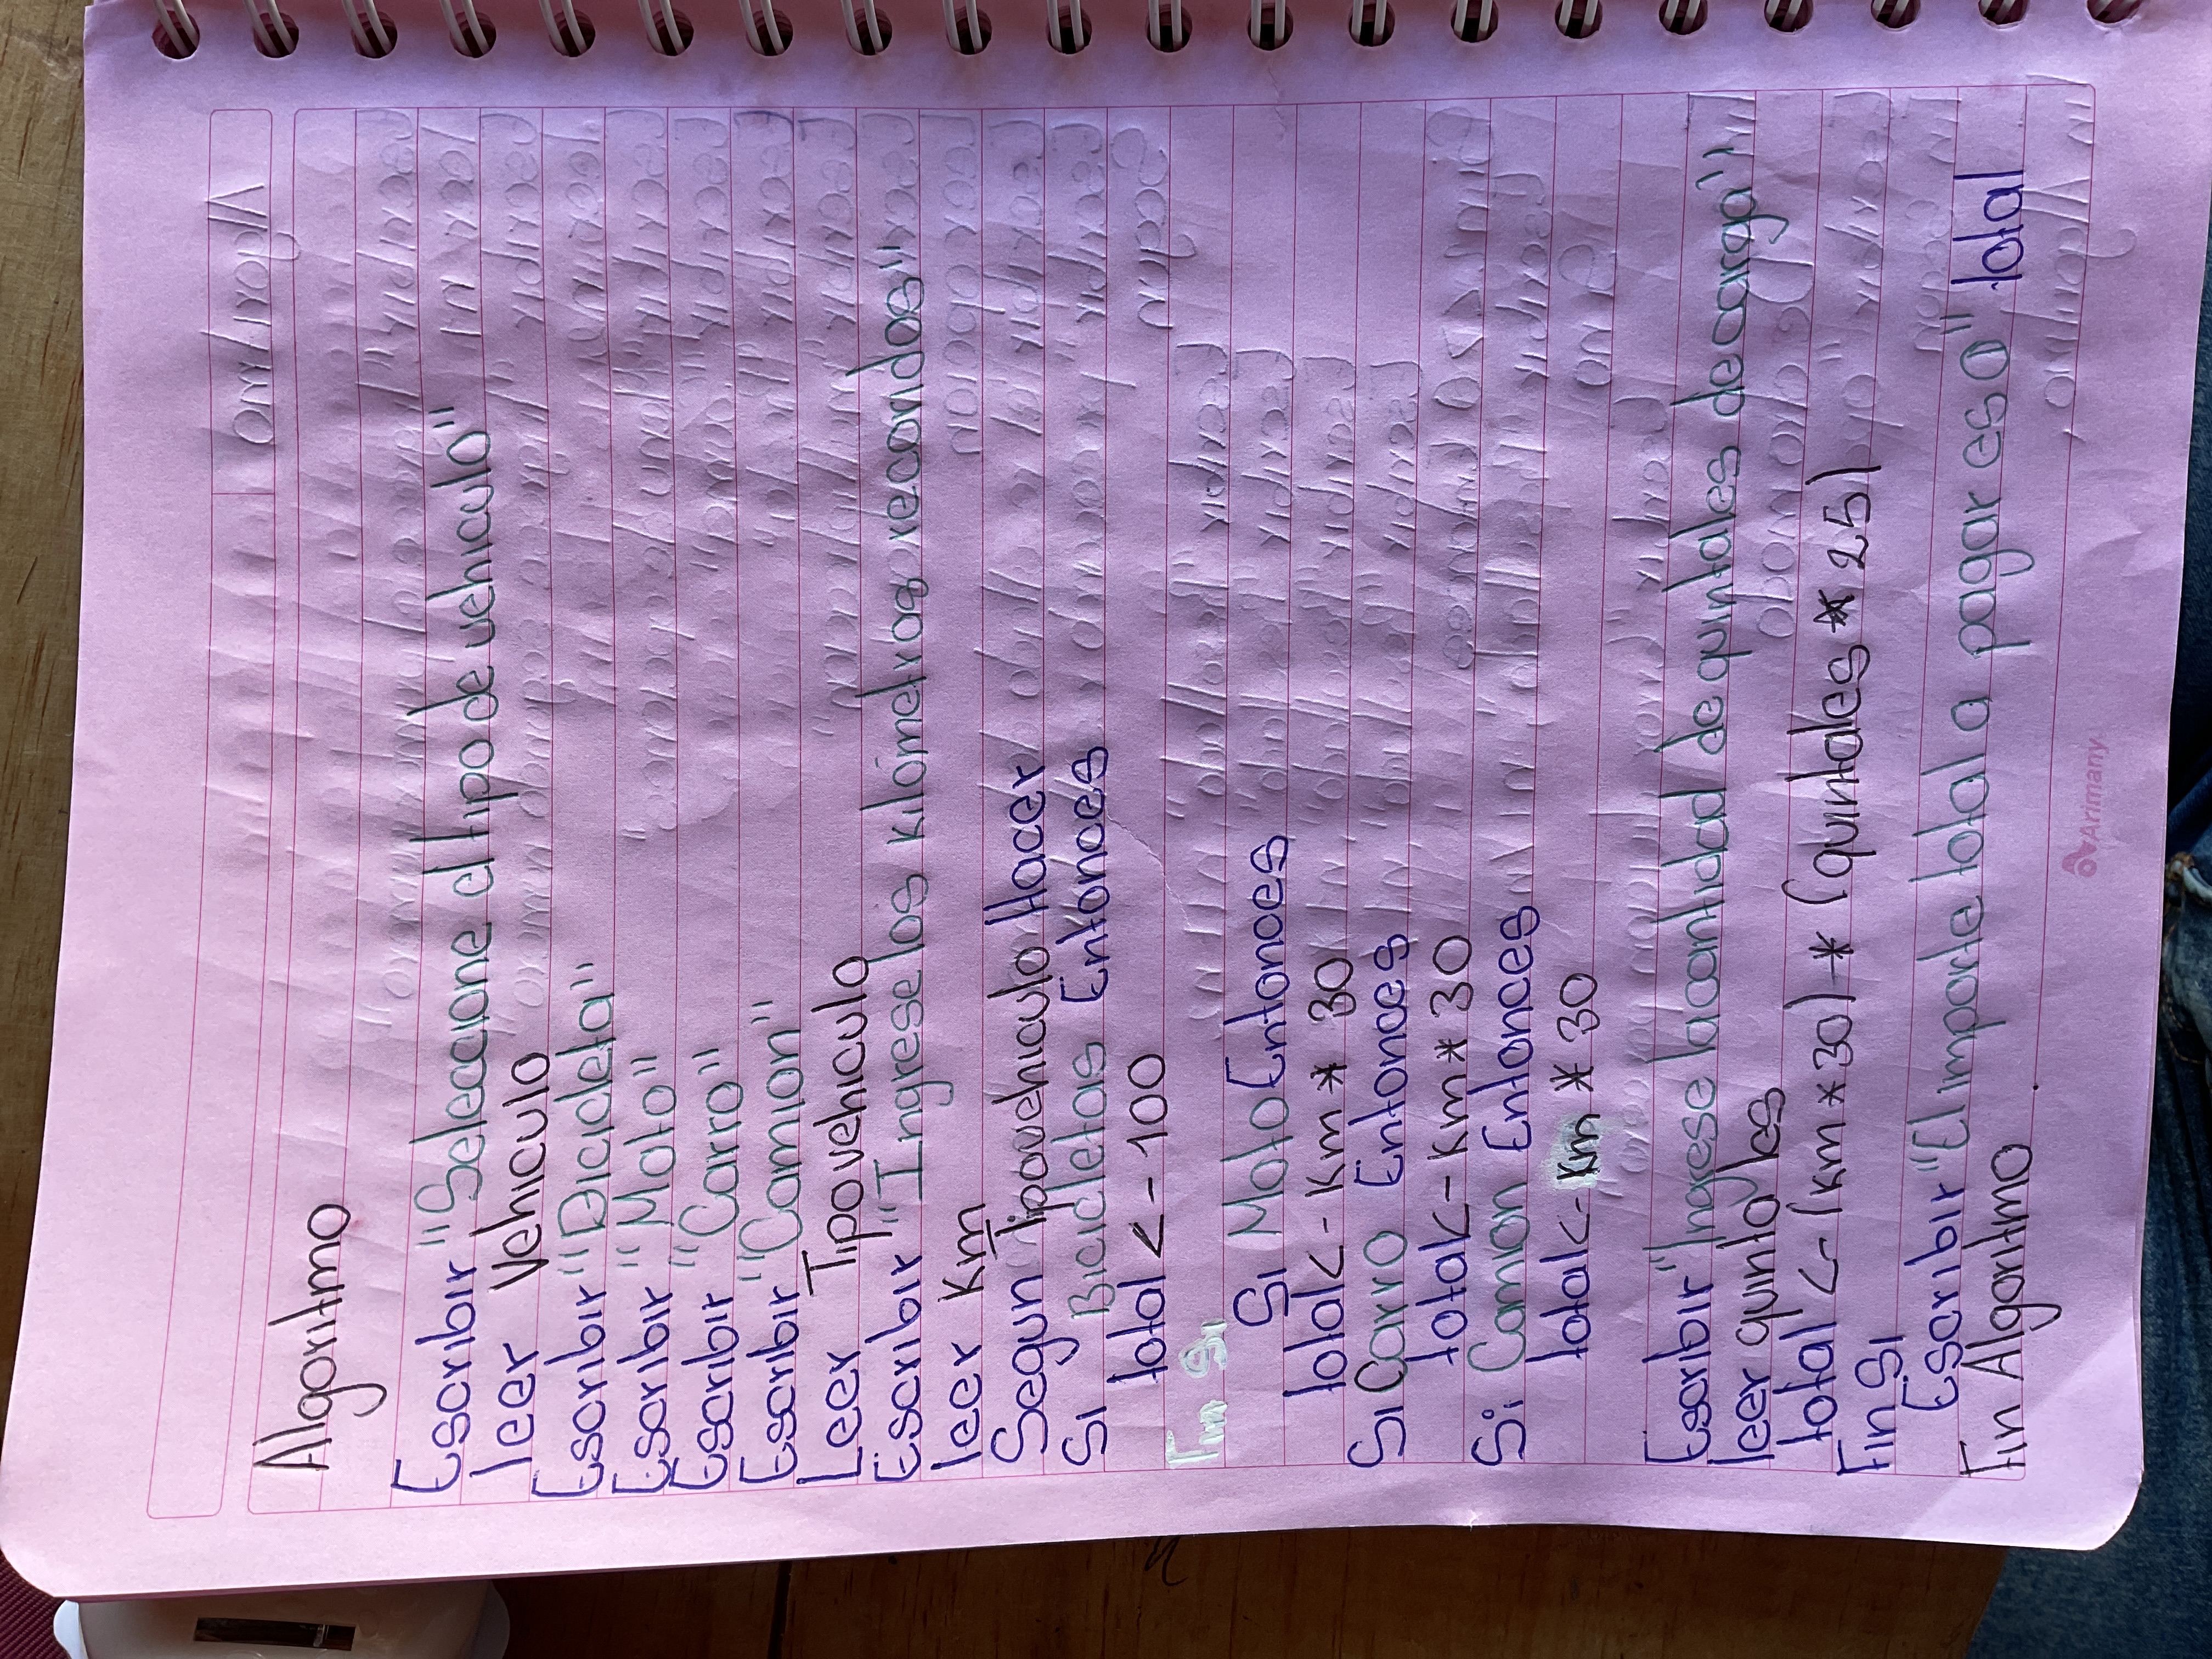 Algoritmo
Escribir "Seleccione el tipo de vehiculo"
leer Vehiculo
Escribir "Bicicleta"
Escribir "Moto"
Escribir "Carro"
Escribir "Camion"
Leer Tipo vehiculo
Escribir "Ingrese los kilómetros recorridos"
leer Km
Segun Tipovehiculo Hacer
Si Bicicletas Entonces
total <- 100
Fin Si
Si Moto Entonces
total <- Km * 30
Si Carro Entonces
total <- Km * 30
Si Camion Entonces
total <- Km * 30
Escribir "Ingrese la cantidad de quintales de carga"
leer quintales
total <- (km * 30) * (quintales * 25)
Fin Si
Escribir "El Importe total a pagar es O" total
Fin Algoritmo.
Arimany